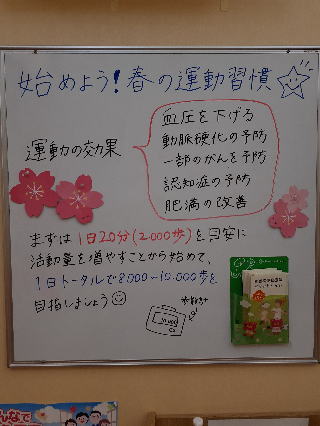 始めよう!春の運動習慣
運動の効果
血圧を下げる
動脈硬化の予防
一部のがんを予防
認知症の予防
肥満の改善
まずは1日20分(2,000歩)を目安に
活動量を増やすことから始めて、
1日トータルで8000~10,000歩を
目指しましょう
歩数計